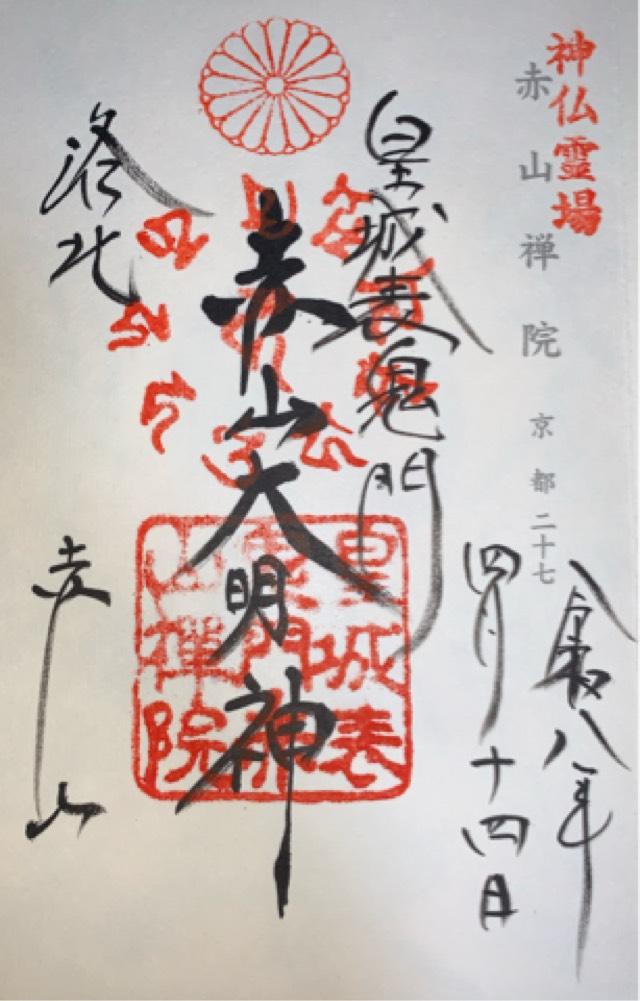 神仏霊場
赤山禅院 京都二十七
令和八年
四月十四日
皇城表鬼門
赤山大明神
皇城表
鬼門
山禅院
洛北
赤山